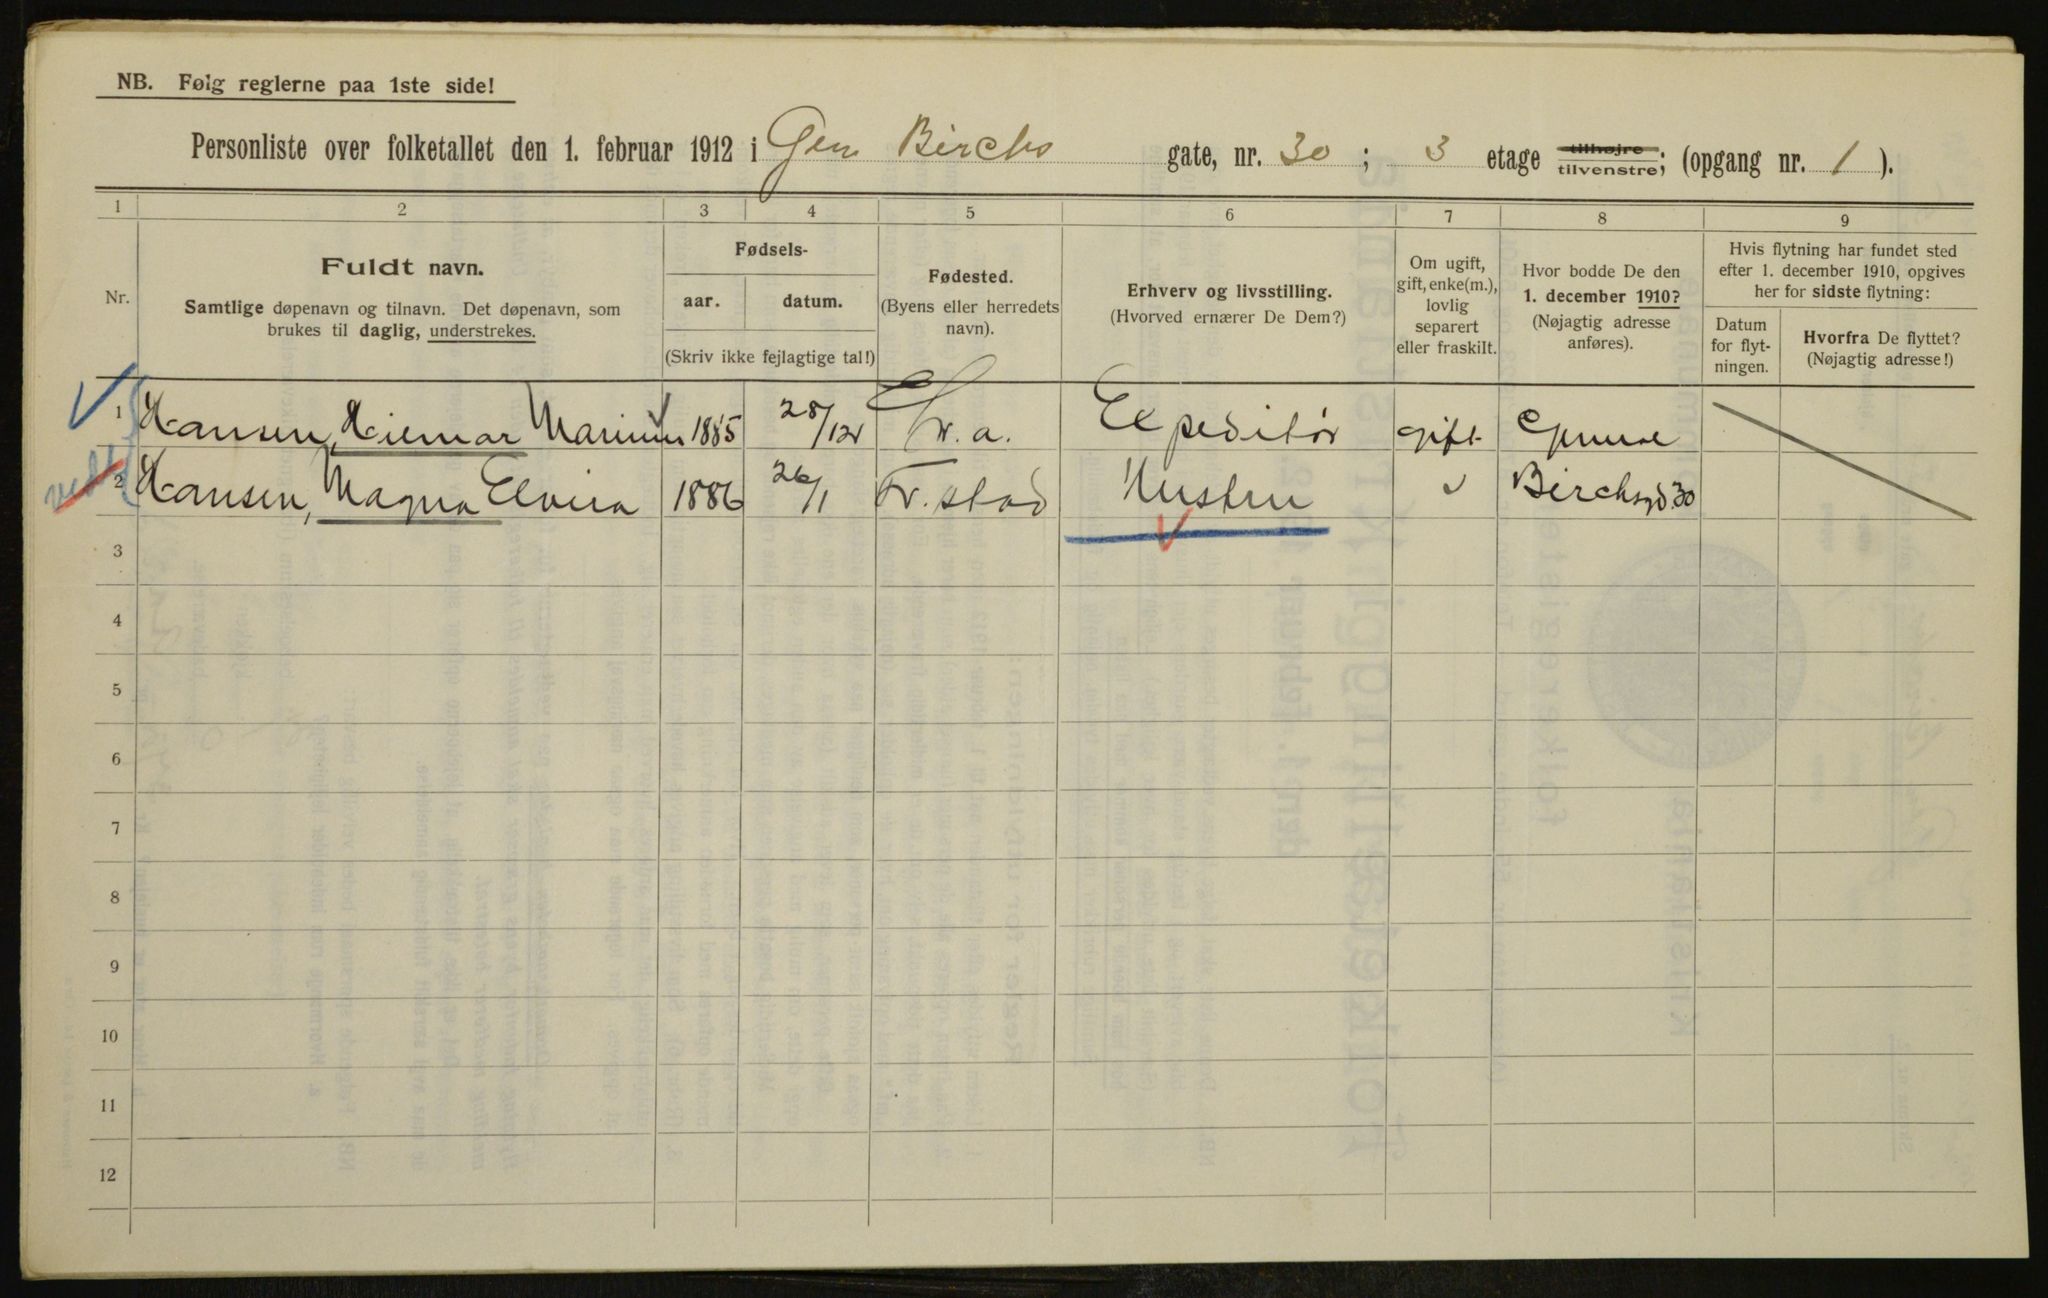 NB. Følg reglerne paa 1ste side!
Personliste over folketallet den 1. februar 1912 i Gen Birchs gate, nr. 30 ; 3 etage tilhøjre tilvenstre; (opgang nr. 1 ).
1 2 3 4 5 6 7 8 9
Nr.
Fuldt navn.
Samtlige døpenavn og tilnavn. Det døpenavn, som
brukes til daglig, understrekes.
Fødsels-
aar. datum.
(Skriv ikke fejlagtige tal!)
Fødested.
(Byens eller herredets
navn).
Erhverv og livsstilling.
(Hvorved ernærer De Dem?)
Om ugift,
gift, enke(m.),
lovlig
separert
eller fraskilt.
Hvor bodde De den
1. december 1910?
(Nøjagtig adresse
anføres).
Hvis flytning har fundet sted
efter 1. december 1910, opgives
her for sidste flytning:
Datum
for flyt-
ningen.
Hvorfra De flyttet?
(Nøjagtig adresse!)
1 Hansen, Hiemar Marinius 1885 28/12 Kr.a. Expeditør gift
2 Hansen, Magna Elvira 1886 26/1 Fr.stad Hustru Birchsgd. 30
3
4
5
6
7
8
9
10
11
12